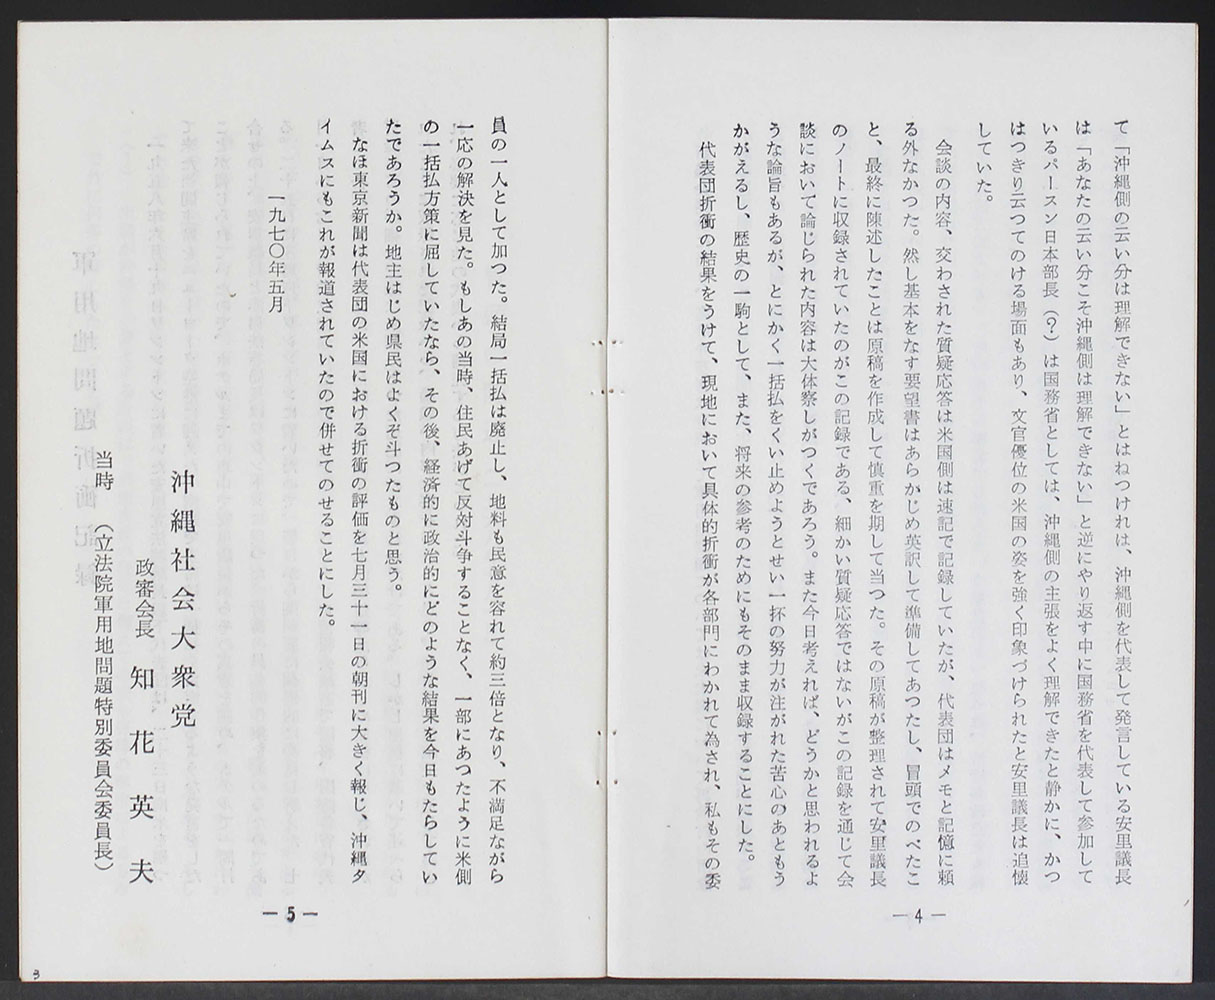 て「沖縄側の云い分は理解できない」とはねつければ、沖縄側を代表して発言している安里議長
は「あなたの云い分こそ沖縄側は理解できない」と逆にやり返す中に国務省を代表して参加して
いるパースン日本部長(?)は国務省としては、沖縄側の主張をよく理解できたと静かに、かつ
はつきり云つてのける場面もあり、文官優位の米国の姿を強く印象づけられたと安里議長は追懐
していた。
会談の内容、交わされた質疑応答は米国側は速記で記録していたが、代表団はメモと記憶に頼
る外なかつた。然し基本をなす要望書はあらかじめ英訳して準備してあつたし、冒頭でのべたこ
と、最終に陳述したことは原稿を作成して慎重を期して当つた。その原稿が整理されて安里議長
のノートに収録されていたのがこの記録である、細かい質疑応答ではないがこの記録を通じて会
談において論じられた内容は大体察しがつくであろう。また今日考えれば、どうかと思われるよ
うな論旨もあるが、とにかく一括払をくい止めようとせい一杯の努力が注がれた苦心のあともう
かがえるし、歴史の一駒として、また、将来の参考のためにもそのまま収録することにした。
代表団折衝の結果をうけて、現地において具体的折衝が各部門にわかれて為され、私もその委
—4—
員の一人として加つた。結局一括払は廃止し、地料も民意を容れて約三倍となり、不満足ながら
一応の解決を見た。もしあの当時、住民あげて反対斗争することなく、一部にあつたように米側
の一括払方策に屈していたなら、その後、経済的に政治的にどのような結果を今日もたらしてい
たであろうか。地主はじめ県民はよくぞ斗つたものと思う。
なほ東京新聞は代表団の米国における折衝の評価を七月三十一日の朝刊に大きく報じ、沖縄タ
イムスにもこれが報道されていたので併せてのせることにした。
一九七〇年五月
沖縄社会大衆党
政審会長 知花英夫
当時 (立法院軍用地問題特別委員会委員長)
—5—
3